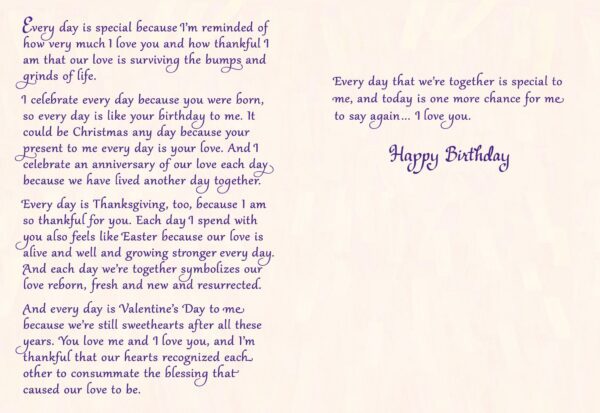 Every day is special because I'm reminded of
how very much I love you and how thankful I
am that our love is surviving the bumps and
grinds of life.
I celebrate every day because you were born,
so every day is like your birthday to me. It
could be Christmas any day because your
present to me every day is your love. And I
celebrate an anniversary of our love each day
because we have lived another day together.
Every day is Thanksgiving, too, because I am
so thankful for you. Each day I spend with
you also feels like Easter because our love is
alive and well and growing stronger every day.
And each day we're together symbolizes our
love reborn, fresh and new and resurrected.
And every day is Valentine's Day to me
because we're still sweethearts after all these
years. You love me and I love you, and I'm
thankful that our hearts recognized each
other to consummate the blessing that
caused our love to be.
Every day that we're together is special to
me, and today is one more chance for me
to say again... I love you.
Happy Birthday